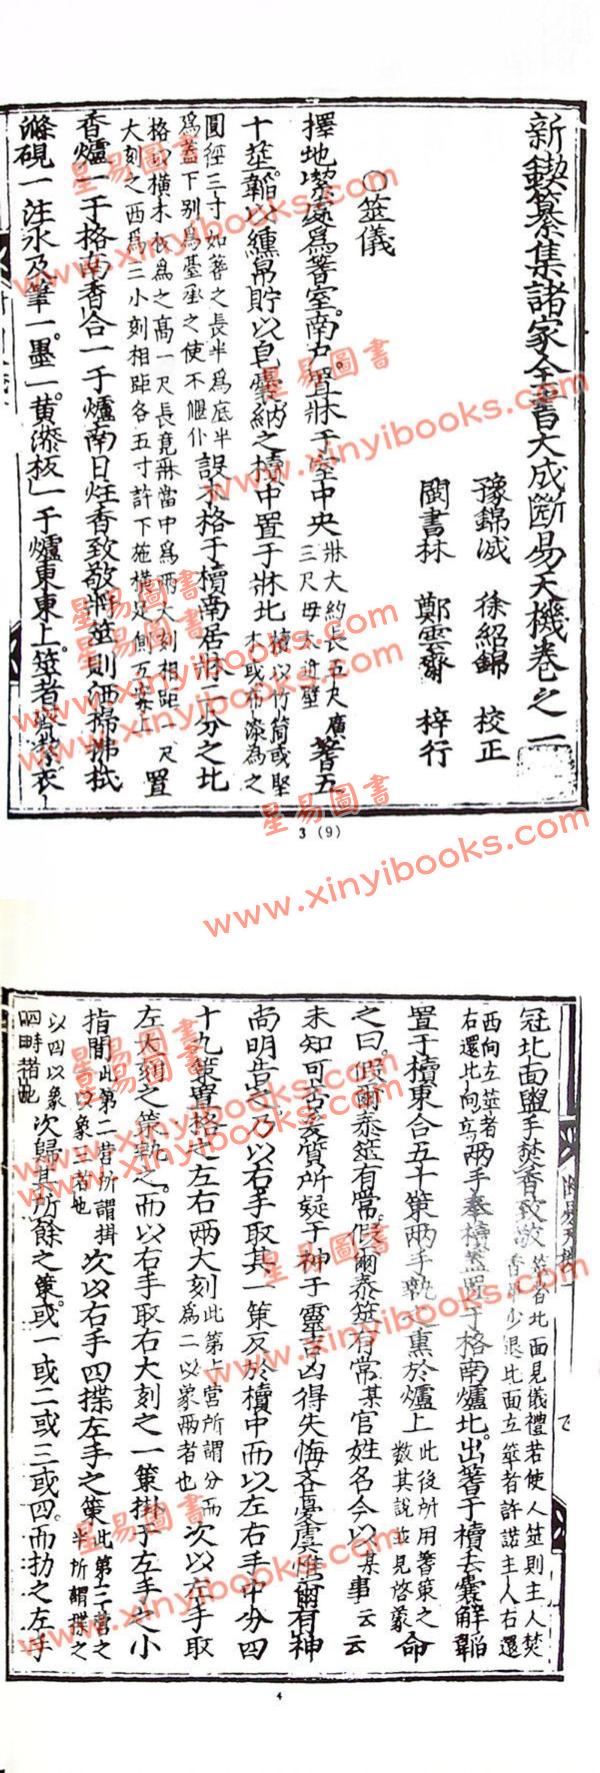 新鍥纂集諸家全書大成斷易天機卷之一
豫錦城 徐紹錦 校正
閩書林 鄭雲齋 梓行
〇筮儀
擇地潔處為蓍室。南戶。置牀于室中央 牀大約長五尺廣三尺毋太近壁 蓍五
十莖。韜以纁帛貯以皂囊納之櫝中置于牀北 櫝以竹筒或堅木或布漆為之
圓徑三寸如蓍之長半為底半為蓋下別為臺函之使不偃仆 設木格于櫝南居牀二分之北
格以橫木板為之高一尺長竟牀當中為兩大刻相距一尺大刻之西為三小刻相距各五寸許下施橫足側立案上 置
香爐一于格南香合一于爐南日炷香致敬將筮則洒掃拂拭
滌硯一注水及筆一。墨一。黃漆板一于爐東東上。筮者齊潔衣
3 (9)
冠北面盥手焚香致敬 筮者北面見儀禮若使人筮則主人焚香畢少退北面立筮者許諾主人右還
西向立筮者右還北向立 兩手奉櫝蓋置于格南爐北。出蓍于櫝去囊解韜
置于櫝東合五十策兩手執之熏於爐上 此後所用蓍策之數其說並見啓蒙 命
之曰。假爾泰筮有常。假爾泰筮有常某官姓名今以某事云云
未知可否爰質所疑于神于靈吉凶得失悔吝憂虞惟爾有神
尚明告之乃以右手取其一策反於櫝中而以左右手中分四
十九策置格之左右兩大刻 此第一營所謂分而為二以象兩者也 次以左手取
左大刻之策執之。而以右手取右大刻之一策掛于左手之小
指間 此第二營所謂掛一以象三者也 次以右手四揲左手之策 此第三營之半所謂揲之
以四以象四時者也 次歸其所餘之策。或一或二或三或四。而扐之左手
4
星易圖書
www.xinyibooks.com